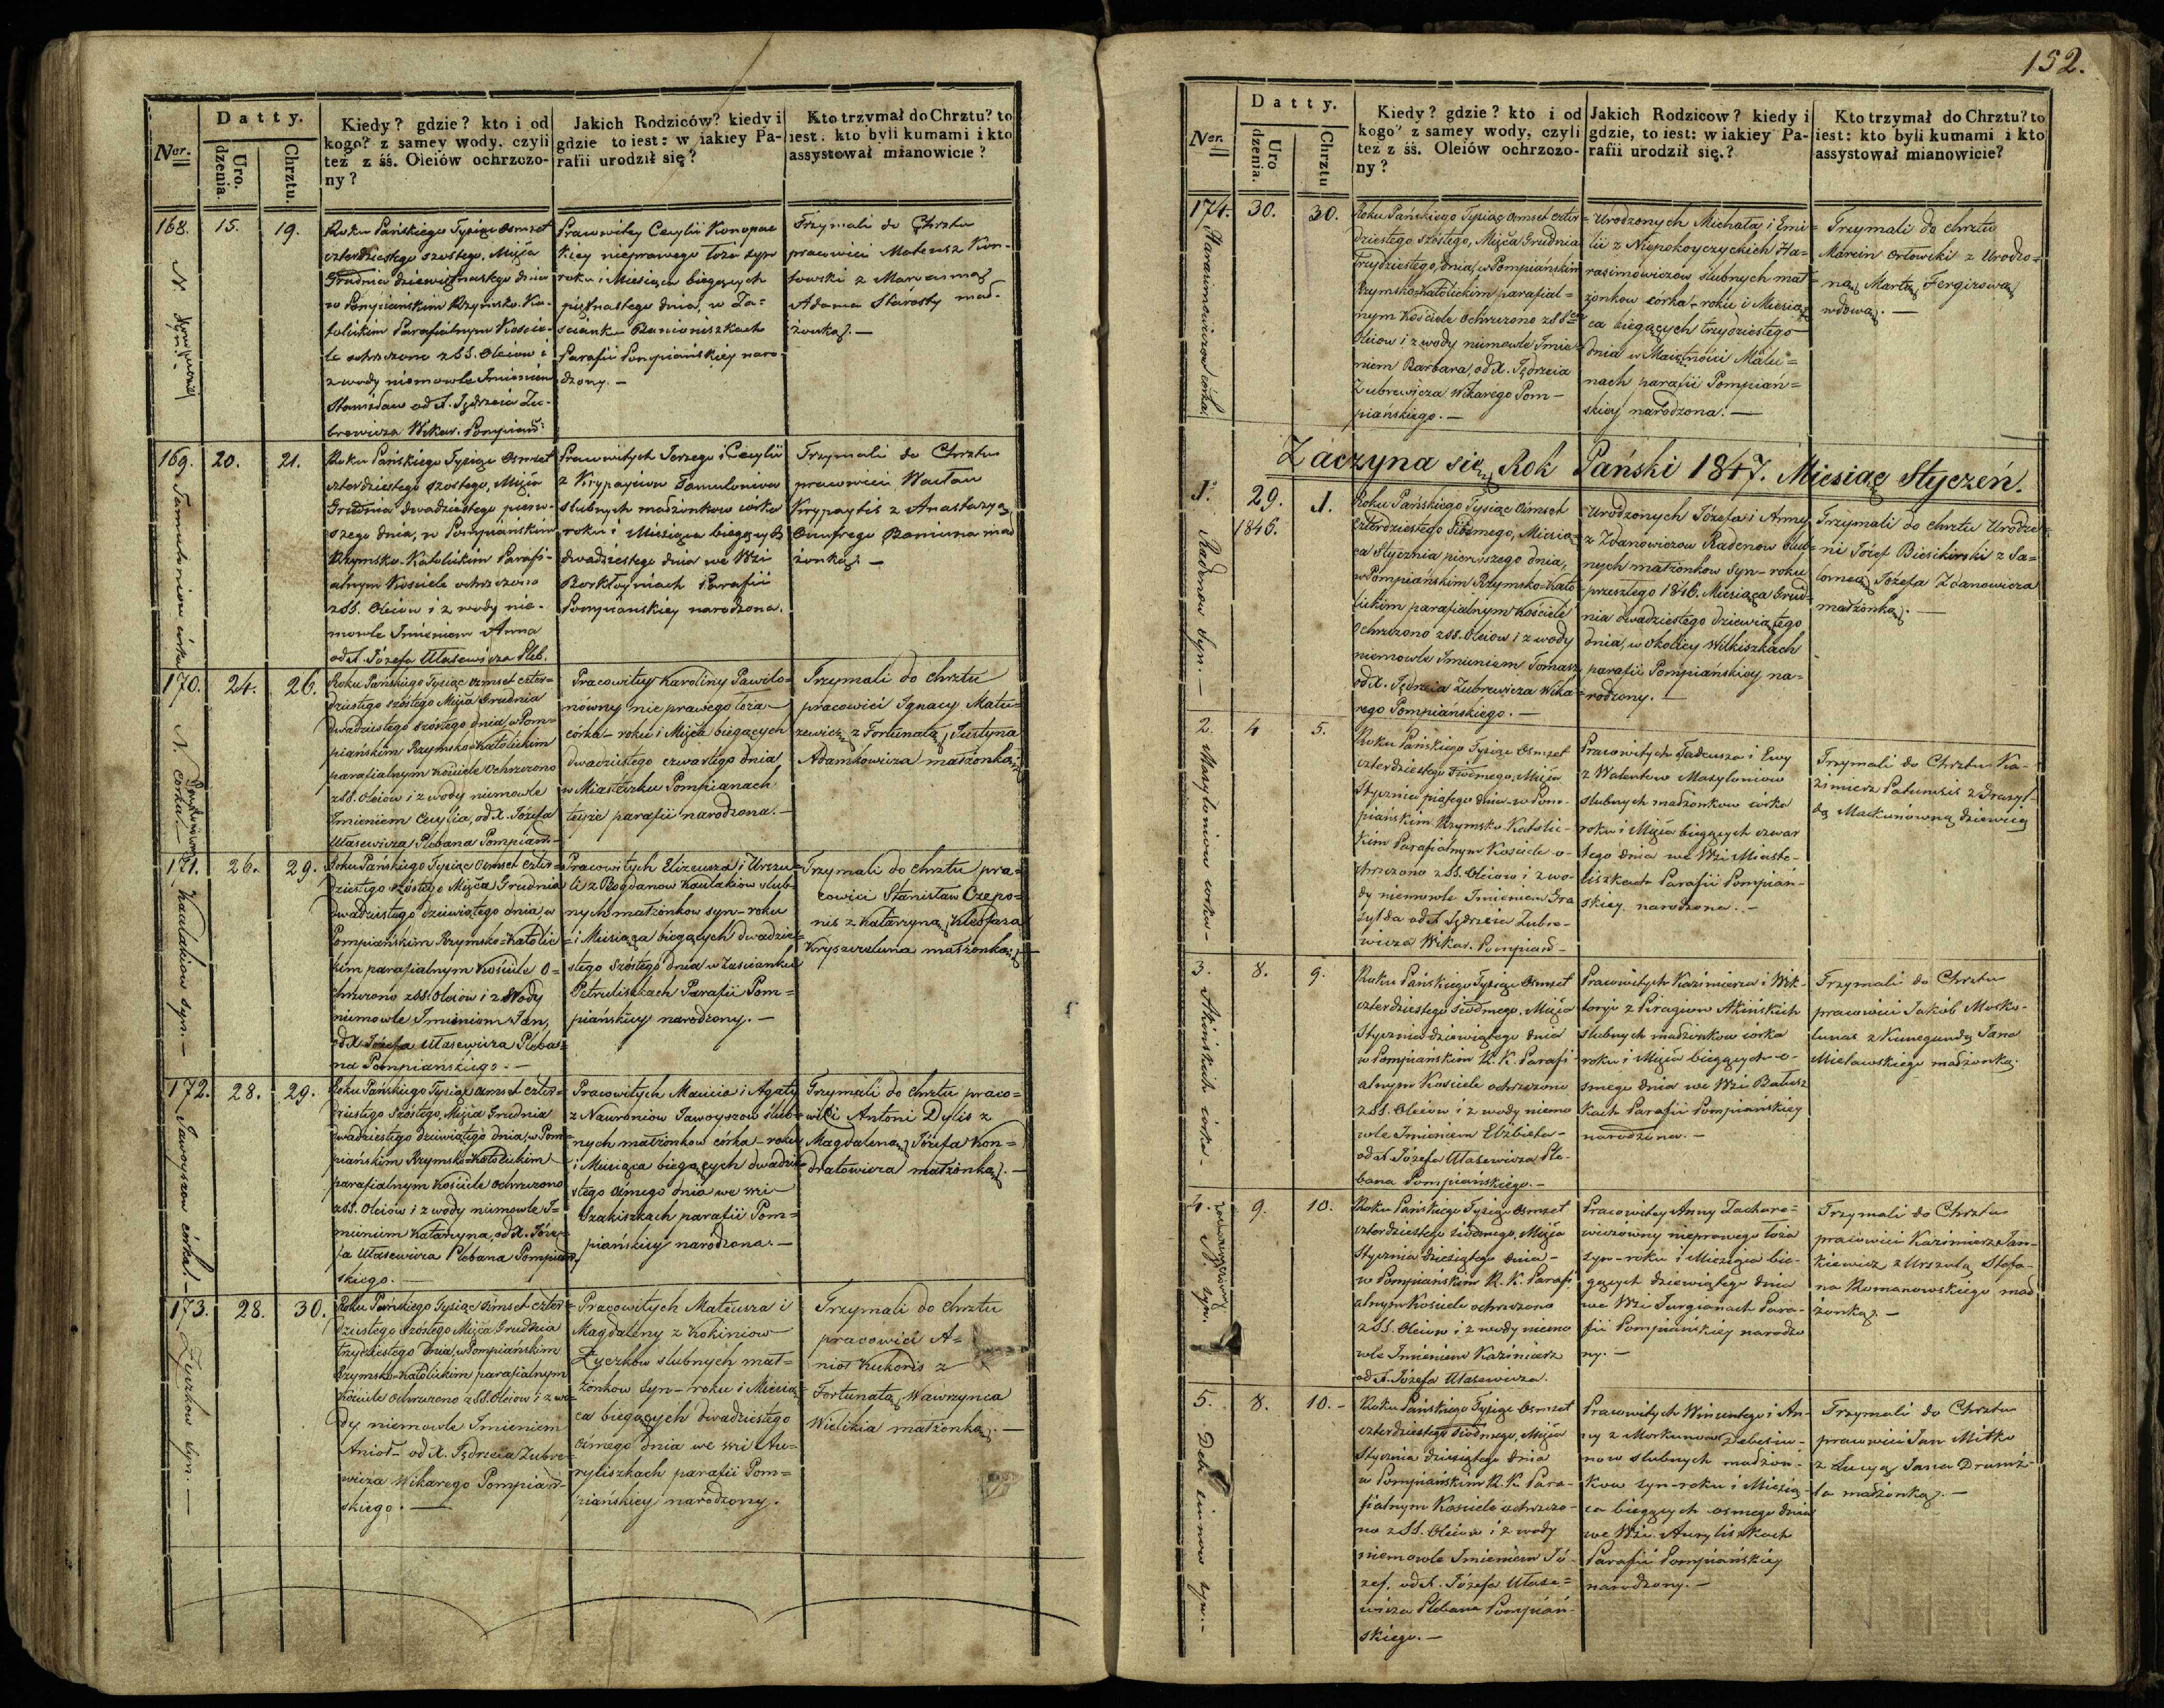 Ner.
Datty.
Uro.
dzenia.
Chrztu.
Kiedy? gdzie? kto i od
kogo? z samey wody, czyli
też z śś. Oleiów ochrzczo-
ny?
Jakich Rodziców? kiedy i
gdzie to iest: w iakiey Pa-
rafii urodził się?
Kto trzymał do Chrztu? to
iest: kto byli kumami i kto
assystował mianowicie?
168.
15.
19.
Roku Pańskiego Tysiąc Osmset
czterdziestego szostego, Mięśa
Grudnia dziewiętnastego dnia
w Pompiańskim Rzymsko-Ka-
tolickim Parafialnym Koscie-
le ochrzczono z SS. Oleiow i
z wody niemowle Imieniem
Stanisław od X. Jędrzeia Zu-
brewicza Wikar. Pompiań:
Pracowitey Cecylii Konopac
kiey nieprawego łoża syn
roku i Miesiąca biegących
piętnastego dnia, w Za-
scianku Ramoniszkach
Parafii Pompiańskiey naro
dzony. —
Trzymali do Chrztu
pracowici Mateusz Kon-
towski z Maryanną
Adama Starosty mał-
żonką. —
169.
Tamulioniow córka
20.
21.
Roku Pańskiego Tysiąc Osmset
czterdziestego szostego, Mięśa
Grudnia dwadziestego pierw-
szego dnia, w Pompiańskim
Rzymsko-Katolickim Parafi-
alnym Kosciele ochrzczono
z SS. Oleiow i z wody nie-
mowle Imieniem Anna
od X. Józefa Ułasewicza Pleb.
Pracowitych Jerzego i Cecylii
z Krypaytiow Tamulioniow
slubnych małżonkow córka
roku i Miesiąca biegących
dwadziestego dnia we Wsi
Borkłoyniach Parafii
Pompiańskiey narodzona.
Trzymali do Chrztu
pracowici Wacław
Krypaytis z Anastazyą
Onufrego Ramiuna mał
żonką. —
170.
24.
26.
Roku Pańskiego Tysiąc osmset czter=
dziestego szóstego Mięśca Grudnia
dwadziestego szóstego dnia, w Pom=
piańskim Rzymsko=Katolickim
parafialnym Kościele Ochrzczono
z SS. Oleiow i z wody niemowle
Imieniem Cecylia, od X. Józefa
Ułasewicza Plebana Pompiań-
Pracowitey Karoliny Pawiło=
nowny nie prawego łoża
córka - roku i Mięśca biegących
dwadziestego czwartego dnia
w Miasteczku Pompianach
teyże parafii narodzona. —
Trzymali do chrztu
pracowici Ignacy Matu=
zewicz z Fortunatą, Justyna
Adamkowicza małżonką. —
171.
Kaulakiow syn. —
26.
29.
Roku Pańskiego Tysiąc Osmset czter=
dziestego szóstego Mięśca Grudnia
dwadziestego dziewiątego dnia, w
Pompiańskim Rzymsko=Katolic
kim parafialnym Kościele O=
chrzczono z SS. Oleiow i z Wody
niemowle Imieniem Jan,
od X. Józefa Ułasewicza Pleba=
na Pompiańskiego. —
Pracowitych Elizeusza i Urszu=
li z Bogdanow Kaulakiow slub-
nych małżonkow syn - roku
i Miesiąca biegących dwadzie=
stego szóstego dnia w Zascianku
Petruliszkach Parafii Pom=
piańskiey narodzony. —
Trzymali do chrztu pra=
cowici Stanisław Czepo=
nis z Katarzyną, Kleofasa
Kryszcziuna małżonką. —
172.
Jawoyszow córka. —
28.
29.
Roku Pańskiego Tysiąc osmset czter=
dziestego szóstego, Mięśca Grudnia
dwadziestego dziewiątego dnia, w Pom=
piańskim Rzymsko=Katolickim
parafialnym Kościele Ochrzczono
z SS. Oleiów i z wody niemowle I=
mieniem Katarzyna, od X. Józe=
fa Ułasewicza Plebana Pompiań
skiego. —
Pracowitych Macieia i Agaty
z Nawroniow Jawoyszow slub=
nych małżonkow córka - roku
i Miesiąca biegących dwadzie=
stego ósmego dnia we wsi
Szakiszkach parafii Pom=
piańskiey narodzona. —
Trzymali do chrztu praco=
wici Antoni Dylis z
Magdaleną, Józefa Kon=
dratowicza małżonką. —
173.
Życzkow syn. —
28.
30.
Roku Pańskiego Tysiąc osmset czter=
dziestego szóstego Mięśca Grudnia
trzydziestego dnia, w Pompiańskim
Rzymsko-Katolickim parafialnym
Kościele Ochrzczono z SS. Oleiow i z wo=
dy niemowle Imieniem
Anioł - od X. Jędrzeia Zubre=
wicza Wikarego Pompiań-
skiego. —
Pracowitych Mateusza i
Magdaleny z Kokiniow
Życzkow slubnych mał=
żonkow syn - roku i Miesią=
ca biegących dwadziestego
ósmego dnia we wsi Au=
ryliszkach parafii Pom=
piańskiey narodzony.
Trzymali do chrztu
pracowici A=
nioł Kukoris z
Fortunatą, Wawrzynca
Wielikia małżonką. —
152.
Ner.
Datty.
Uro
dzenia.
Chrztu
Kiedy? gdzie? kto i od
kogo? z samey wody, czyli
też z śś. Oleiów ochrzczo-
ny?
Jakich Rodzicow? kiedy i
gdzie, to iest: w iakiey Pa-
rafii urodził się.?
Kto trzymał do Chrztu? to
iest: kto byli kumami i kto
assystował mianowicie?
174.
Harasimowiczow córka.
30.
30.
Roku Pańskiego Tysiąc Osmset czter=
dziestego szóstego, Mięśca Grudnia
Trzydziestego, dnia, w Pompiańskim
Rzymsko=Katolickim parafial=
nym Kościele Ochrzczono z SS.
Oleiow i z wody niemowle Imie=
niem Barbara, od X. Jędrzeia
Zubrewicza Wikarego Pom-
piańskiego. —
Urodzonych Michała i Emi=
lii z Niepokoyczyckich Ha=
rasimowiczow slubnych mał=
żonkow córka - roku i Miesią=
ca biegących trzydziestego
dnia w Maiętności Malu=
nach parafii Pompiań=
skiey narodzona. —
Trzymali do chrztu
Marcin Orłowski z Urodzo=
ną Martą Fergisową
wdową. —
Zaczyna się Rok Pański 1847. Miesiąc Styczeń.
1.
Radenow syn. —
29.
1846.
1.
Roku Pańskiego Tysiąc Ósmset
czterdziestego siódmego, Miesią=
ca Stycznia pierwszego dnia,
w Pompiańskim Rzymsko=Kato
lickim parafialnym Kościele
Ochrzczono z SS. Oleiow i z wody
niemowle Imieniem Tomasz,
od X. Jędrzeia Zubrewicza Wika=
rego Pompiańskiego. —
Urodzonych Józefa i Anny
z Zdanowiczow Radenow slub=
nych małżonkow syn - roku
przeszłego 1846. Miesiąca Grud=
nia dwadziestego dziewiątego
dnia, w okolicy Wilkiszkach
parafii Pompiańskiey na=
rodzony. —
Trzymali do chrztu Urodze=
ni Józef Biesikirski z Sa=
lomeą Józefa Zdanowicza
małżonką. —
2.
Masyloniow corka -
4
5.
Roku Pańskiego Tysiąc Osmset
czterdziestego siódmego, Mięśa
Stycznia piątego dnia - w Pom-
piańskim Rzymsko Katolic-
kim Parafialnym Kosciele o-
chrzczono z SS. Oleiow i z wo-
dy niemowle Imieniem Gra
żylda od X. Jędrzeia Zubre-
wicza Wikar. Pompiań -
Pracowitych Tadeusza i Ewy
z Walentow Masyloniow
slubnych małżonkow córka
roku i Mięśa biegących czwar
tego dnia we Wsi Miaste-
liszkach Parafii Pompiań-
skiey narodzona. -
Trzymali do Chrztu Ka-
zimierz Patumsis z Grazyl-
dą Mackunówną dziewicą
3.
Akińskich córka -
8.
9.
Roku Pańskiego Tysiąc Osmset
czterdziestego siodmego, Mięśa
Stycznia dziewiątego dnia
w Pompiańskim R. K. Parafi-
alnym Kosciele ochrzczono
z SS. Oleiow i z wody niemo
wle Imieniem Elżbieta -
od X. Józefa Ułasewicza Ple-
bana Pompiańskiego. -
Pracowitych Kazimierza i Wik-
toryi z Piragiow Akińskich
slubnych małżonkow córka
roku i Mięśa biegących o-
smego dnia we Wsi Bałusz
kach Parafii Pompiańskiey
narodzona. -
Trzymali do Chrztu
pracowici Jakób Mosko-
lunas z Kunegundą Jana
Miclawskiego małżonką.
4.
9.
10.
Roku Pańskiego Tysiąc Osmset
czterdziestego siodmego, Mięśa
Stycznia dziesiątego dnia -
w Pompiańskim R. K. Parafi
alnym Kosciele ochrzczono
z SS. Oleiow i z wody niemo
wle Imieniem Kazimierz
od X. Józefa Ułasewicza.
Pracowitey Anny Zacharo=
wiczówny nieprawego łoża
syn - roku i Miesiąca bie-
gących dziewiątego dnia
we Wsi Jurgianach Para-
fii Pompiańskiey narodzo
ny. —
Trzymali do Chrztu
pracowici Kazimierz Jan-
kiewicz z Urszulą Stefa-
na Romanowskiego mał
żonką. —
5.
8.
10. -
Roku Pańskiego Tysiąc Osmset
czterdziestego siodmego, Mięśa
Stycznia dziesiątego dnia
w Pompiańskim R. K. Para-
fialnym Kosciele ochrzczo-
no z SS. Oleiow i z wody
niemowle Imieniem Jó-
zef, od X. Józefa Ułase=
wicza Plebana Pompiań-
skiego. —
Pracowitych Wincentego i An-
ny z Morkunow Debesiu-
now slubnych małżon-
kow syn - roku i Miesią-
ca biegących osmego dnia
we Wsi Auryliszkach
Parafii Pompiańskiey
narodzony. —
Trzymali do Chrztu
pracowici Jan Mitko
z Lucyą Jana Drumż-
la małżonką. —